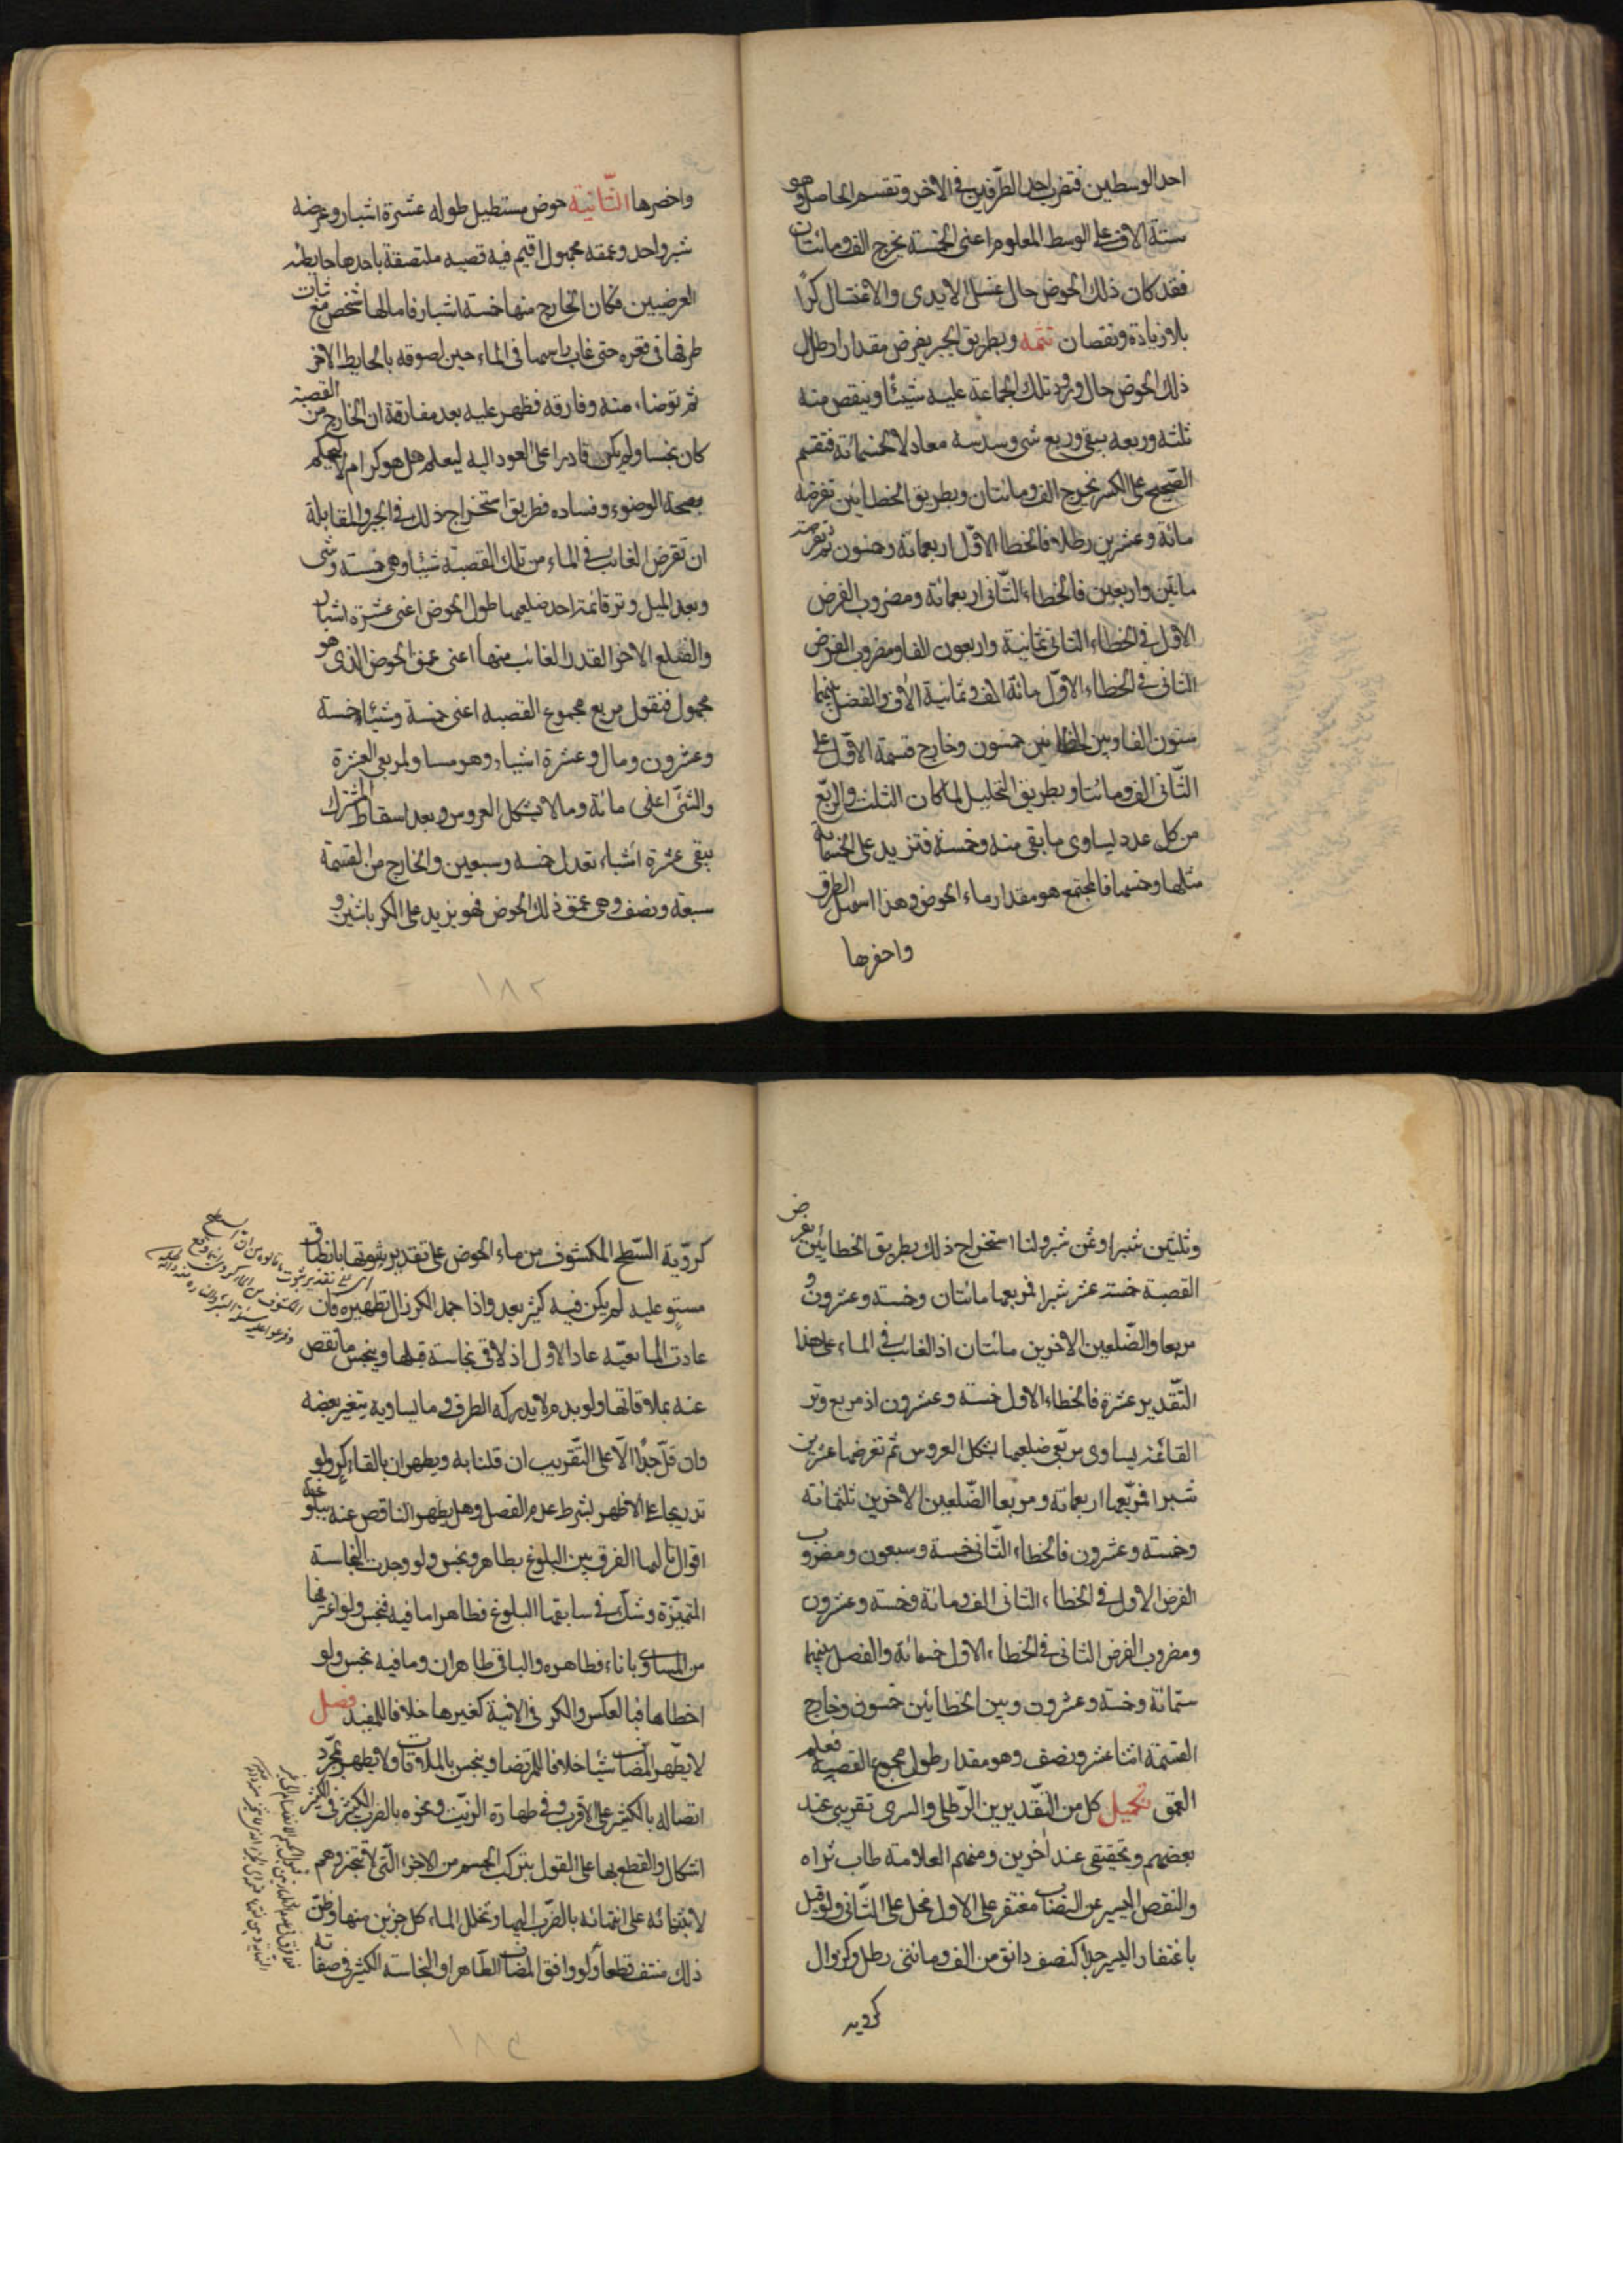 احد الوسطين فتضرب احد الطرفين في الاخر وتقسم الحاصل وهو
ستة الاف على الوسط المعلوم اعنى الخمسة يخرج الف ومائتان
فقد كان ذلك الحوض حال غسل الايدى والاغتسال كرّا
بلا زيادة ونقصان تتمه وبطريق الجبر يفرض مقدار ارطال
ذلك الحوض حال ورود تلك الجماعة عليه شيئا وينقص منه
ثلثه وربعه يبقى ربع شئ وسدسه معادلا لخمسمائة فتقسم
الصحيح على الكسر يخرج الف ومائتان وبطريق الخطائين تفرضه
مائة وعشرين رطلا فالخطاء الاول اربعمائة وخمسون ثم تفرضه
مايتين واربعين فالخطاء الثانى اربعمائة ومضروب الفرض
الاول في الخطاء الثانى ثمانية واربعون الفا ومضروب الفرض
الثانى في الخطاء الاول مائة الف وثمانية الاف والفضل بينهما
ستون الفا وبين الخطائين خمسون وخارج قسمة الاول على
الثانى الف ومائتا وبطريق التحليل لما كان الثلث والربع
من كل عدد يساوى ما بقى منه وخمسه فتزيد على الخمسمائة
مثلها وخمسها فالمجتمع هو مقدار ماء الحوض وهذا اسهل الطرق
واخصرها
واخصرها الثانية حوض مستطيل طوله عشرة اشبار وعرضه
شبر واحد وعمقه مجهول اقيم فيه قصبه ملتصقة باحدها حايطيه
العرضيين فكان الخارج منها خمسة اشبار فامالها شخص مع ثبات
طرفها في قعره حتى غاب راسها في الماء حين لصوقه بالحايط الاخر
ثم توضاء منه وفارقه فظهر عليه بعد مفارقة ان الخارج من القصبة
كان نجسا ولم يكن قادرا على العود اليه ليعلم هل هو كر ام لا ليحكم
بصحة الوضوء وفساده فطريق استخراج ذلك في الجبر والمقابلة
ان تفرض الغائب في الماء من تلك القصبة شيئا وهى خمسة وشئ
وبعد الميل وتر قائمة احد ضلعيها طول الحوض اعنى عشرة اشبار
والضلع الاخر القدر الغائب منها اعنى عمق الحوض الذى هو
مجهول فنقول مربع مجموع القصبه اعنى خمسة وشيئا خمسة
وعشرون ومال وعشرة اشياء وهو مساو لمربعى العشرة
والشئ اعنى مائة ومالا بشكل العروس وبعد اسقاط المشترك
يبقى عشرة اشياء تعدل خمسه وسبعين والخارج من القسمة
سبعة ونصف وهى عمق ذلك الحوض فهو يزيد على الكر باثنين و
وثلثين شبرا وثمن شبر ولنا استخراج ذلك بطريق الخطائين نفرض
القصبة خمسة عشر شبرا فمربعها مائتان وخمسة وعشرون و
مربعا والضلعين الاخرين مائتان اذ الغائب في الماء على هذا
التقدير عشرة فالخطاء الاول خمسه وعشرون اذ مربع وتر
القائمة يساوى مربعى ضلعيها بشكل العروس ثم تفرضها عشرين
شبرا فمربعها اربعمائة ومربعا الضلعين الاخرين ثلثمائة
وخمسه وعشرون فالخطاء الثانى خمسة وسبعون ومضروب
الفرض الاول في الخطاء الثانى الف ومائة وخمسة وعشرون
ومضروب الفرض الثانى في الخطاء الاول خمسمائة والفضل بينهما
ستمائة وخمسة وعشرون وبين الخطائين خمسون وخارج
القسمة اثنا عشر ونصف وهو مقدار طول مجموع القصبه فعلم
العمق تكميل كل من التقديرين الرطلى والشبرى تقريبى عند
بعضهم وتحقيقى عند اخرين ومنهم العلامة طاب ثراه
والنقص اليسير عن النصاب مغتفر على الاول مخل على الثانى ولو قيل
باغتفار اليسير جدا كنصف دانق من الف ومائتى رطل وكزوال
كروية
كروّية السّطح المكشوف من ماء الحوض على تقدير ثبوتها بانطباق
مستو عليه لم يكن فيه كثير بعد واذا جمد الكر زال تطهيره فان
عادت المائعيّة عاد الاول اذ لاقى نجاسة قبلها وينجس ما نقص
عنه بملاقاتها ولو بدم لا يدركه الطرف وما يساويه بتغير بعضه
وان قل جدا الا على التقريب ان قلنا به ويطهران بالقاء كر ولو
تدريجا على الاظهر بشرط عدم الفصل وهل يطهر الناقص عنه ببلوغه
اقوال ثالثها الفرق بين البلوغ بطاهر ونجس ولو وجدت النجاسة
المتميّزة وشك في سابقها البلوغ فطاهر اما فيه فنجس ولو اغترفها
من المساوى باناء فظاهره والباقى طاهران وما فيه نجس ولو
اخطاها فبالعكس والكر في الانية كغيرها خلافا للمفيد فصل
لا يطهر المضاف شيئا خلافا للمرتضى وينجس بالملاقات ولا يطهر بمجرد
اتصاله بالكثير على الاقرب وفي طهارة الزيت ونحوه بالضرب الكثير في الكثير
اشكال والقطع بها على القول بتركب الجسم من الاجزاء التى لا تتجزى وهم
لابتنائه على انتهائه بالضرب اليها وتخلل الماء كل جزئين منها وظن
ذلك منتف قطعا ولو وافق المضاف الطاهر او النجاسة الكثير في صفاته